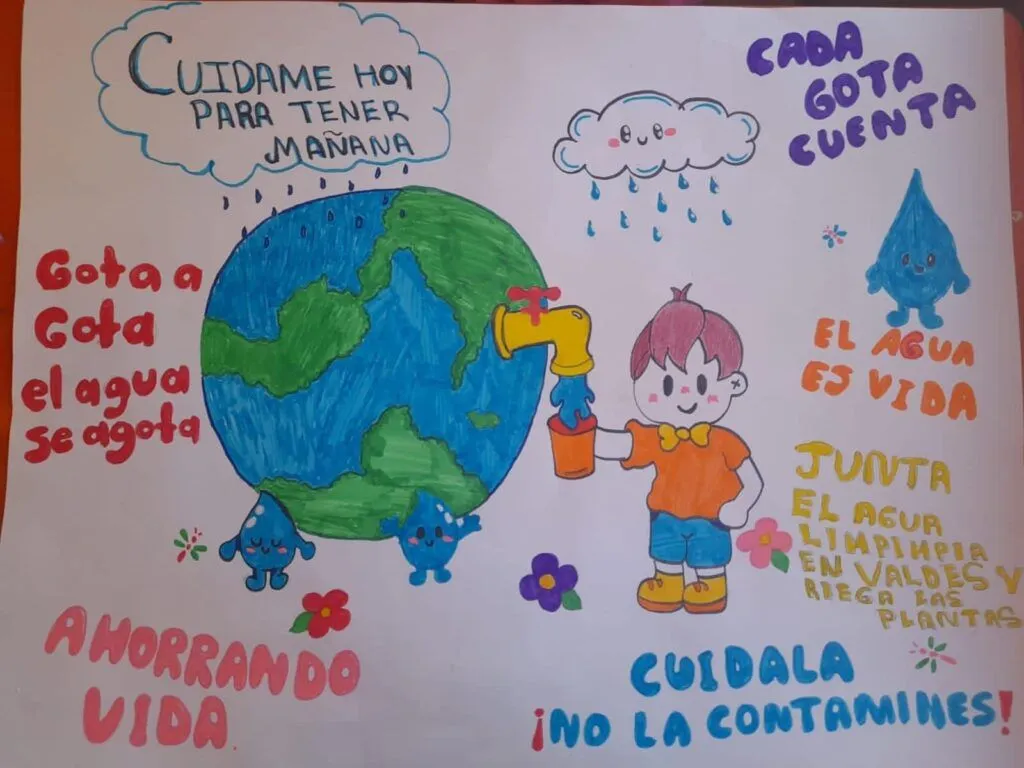 CUIDAME HOY
PARA TENER
MAÑANA
CADA
GOTA
CUENTA
Gota a
Gota
el agua
se agota
EL AGUA
ES VIDA
JUNTA
EL AGUA
LIMPIMPIA
EN VALDES Y
RIEGA LAS
PLANTAS
AHORRANDO
VIDA
CUIDALA
¡NO LA CONTAMINES!